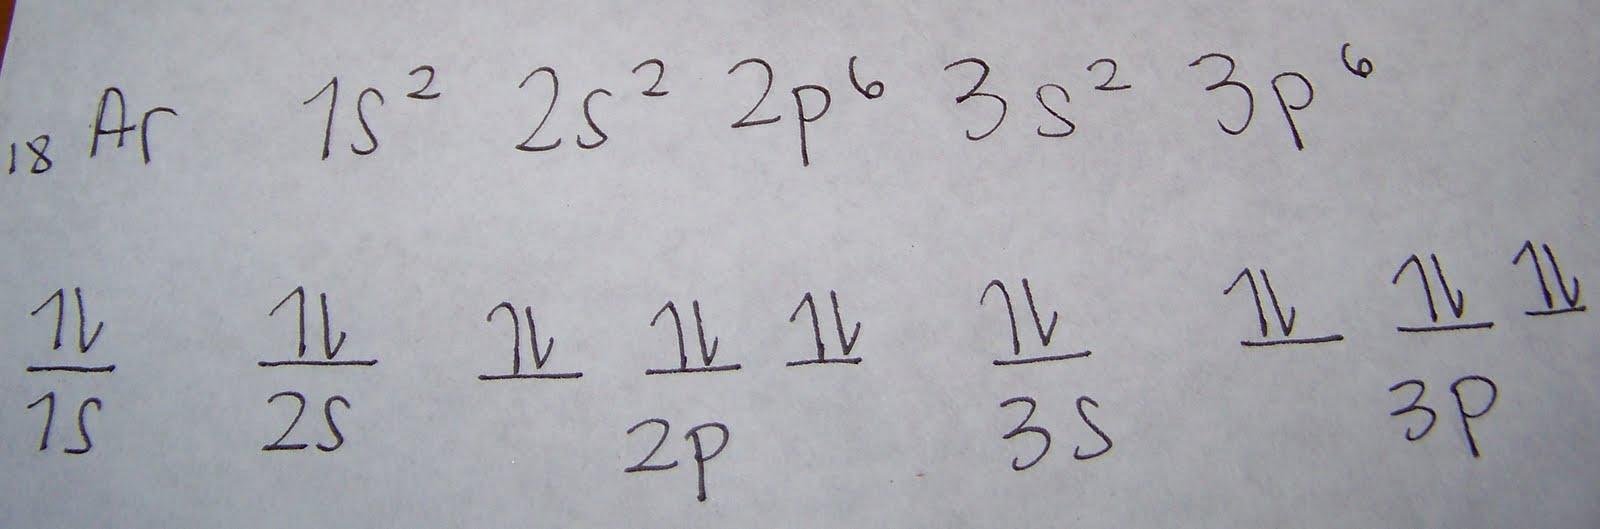 ₁₈Ar 1s² 2s² 2p⁶ 3s² 3p⁶
⥮ ⥮ ⥮ ⥮ ⥮ ⥮ ⥮ ⥮ ⥮
1s 2s 2p 3s 3p